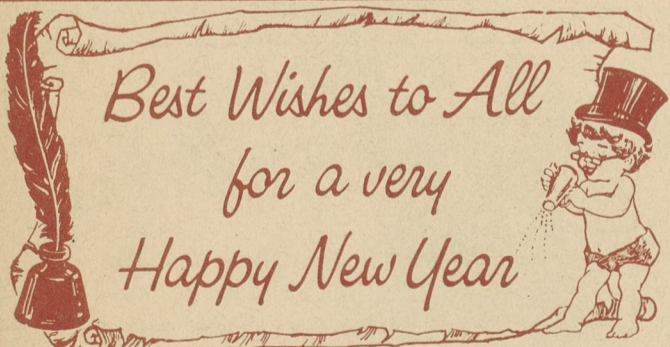 Best Wishes to All
for a very
Happy New Year